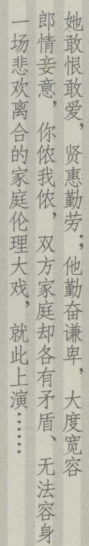 她敢恨敢爱，贤惠勤劳；他勤奋谦卑，大度宽容
郎情妾意，你侬我侬，双方家庭却各有矛盾、无法容身
一场悲欢离合的家庭伦理大戏，就此上演……